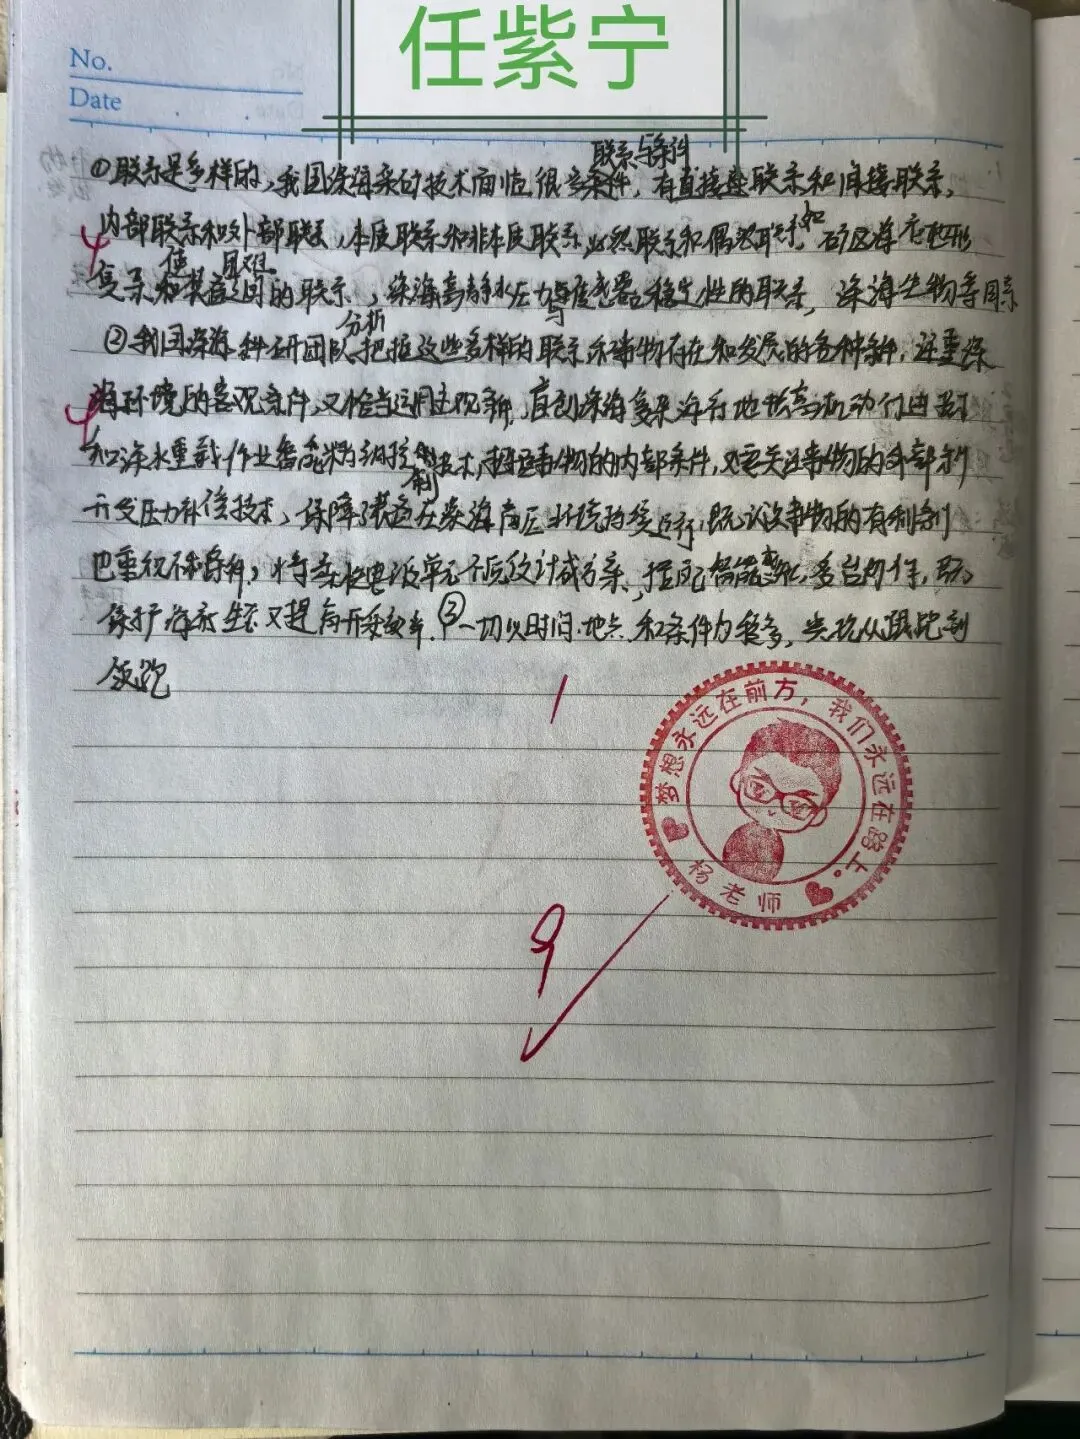 任紫宁
No.
Date
联系与条件
①联系是多样的,我国深海采矿技术面临很多条件,有直接联系和间接联系,
内部联系和外部联系,本质联系和非本质联系,必然联系和偶然联系,如矿区海底地形
复杂和装备之间的联系,深海高静水压力与传感器稳定性的联系,深海生物等因素
分析
②我国深海科研团队把握这些多样的联系和事物存在和发展的各种条件,注重深
海环境的客观条件,又恰当运用主观条件,
和深水重载作业智能精细控制技术,事物的内部条件,又要关注事物的外部条件
开发压力补偿技术,保障了装备在深海高压环境稳定运行,既认识事物的有利条件
也重视不利条件,智能,多台协作,既
保护海底生态又提高开采效率.③一切以时间、地点和条件为转移,实现从跟跑到
领跑
1
9
梦想永远在前方,我们永远在路上。
杨老师